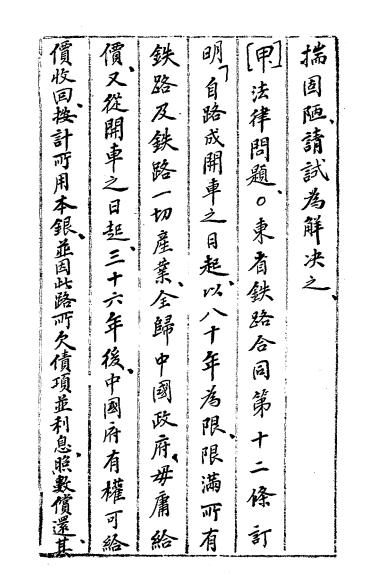 揣固陋、請試為解决之、
[甲]法律問題。○東省鉄路合同第十二條訂
明、「自路成開車之日起、以八十年為限、限滿所有
鉄路及鉄路一切產業、全歸中國政府、毋庸給
價、又從開車之日起、三十六年後、中國府有權可給
價收回、按計所用本銀、並因此路所欠債項並利息、照數償還、其